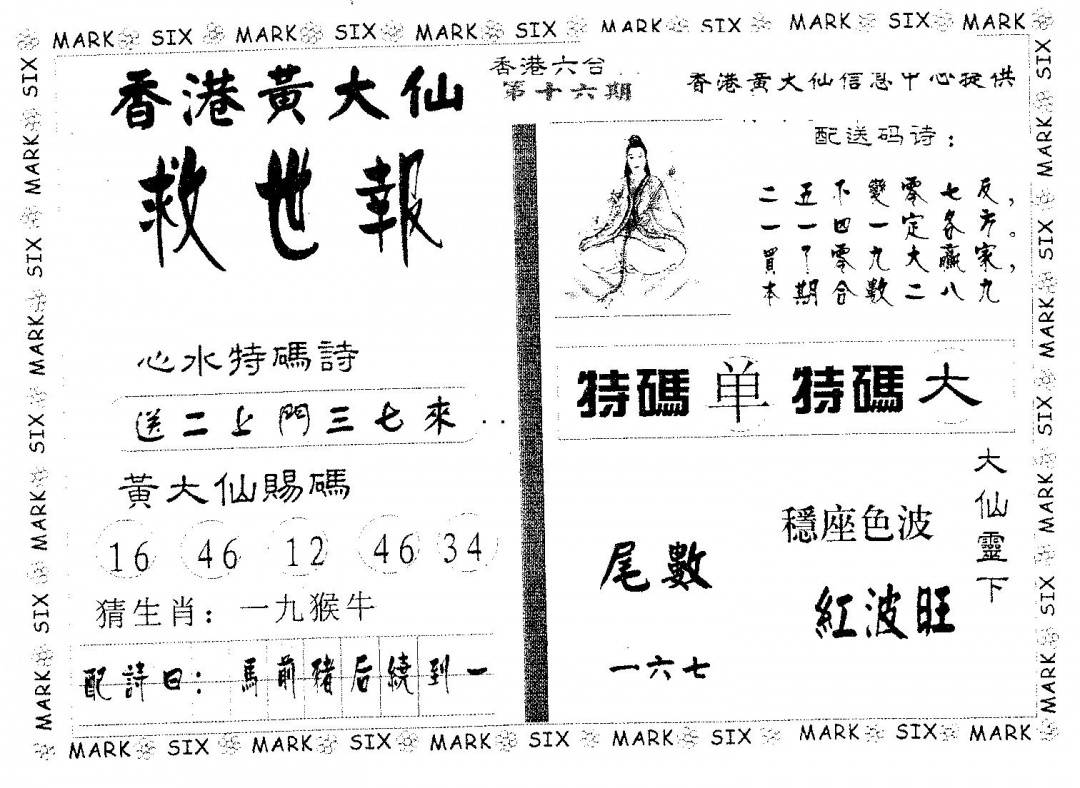 MARK SIX MARK SIX MARK SIX MARK SIX MARK SIX MARK
香港黃大仙
救世報
香港六合
第十六期
香港黃大仙信息中心提供
配送码诗：
二五不變零七反，
一一四一定各方。
買了零九大贏家，
本期合數二八九
心水特碼詩
送二上門三七來..
特碼 单 特碼 大
黃大仙賜碼
16 46 12 46 34
猜生肖：一九猴牛
配詩曰：馬前豬后繞到一
尾數
一六七
穩座色波
紅波旺
大仙靈下
MARK SIX MARK SIX MARK SIX MARK SIX
MARK SIX MARK SIX MARK SIX MARK SIX
MARK SIX MARK SIX MARK SIX MARK SIX MARK SIX MARK